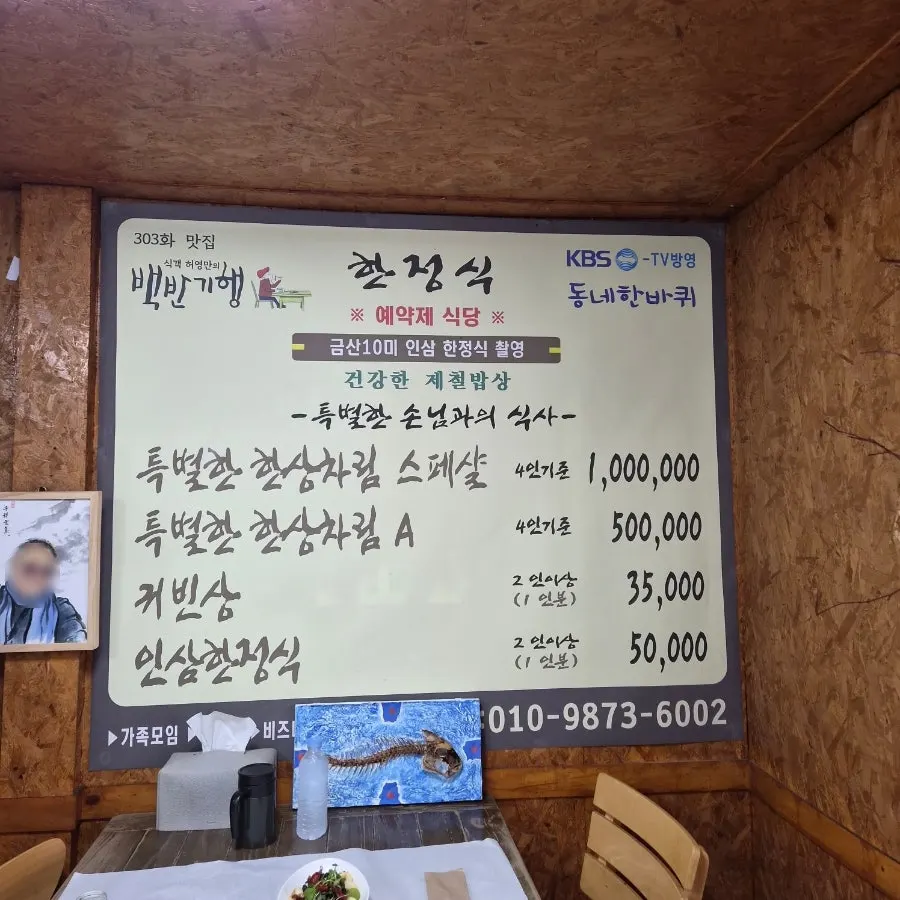 303화 맛집
식객 허영만의
백반기행
한정식
KBS -TV방영
동네한바퀴
※ 예약제 식당 ※
금산10미 인삼 한정식 촬영
건강한 제철밥상
-특별한 손님과의 식사-
특별한 한상차림 스페샬 4인기준 1,000,000
특별한 한상차림 A 4인기준 500,000
귀빈상 2인이상 (1인분) 35,000
인삼한정식 2인이상 (1인분) 50,000
▶가족모임 ▶비즈
010-9873-6002